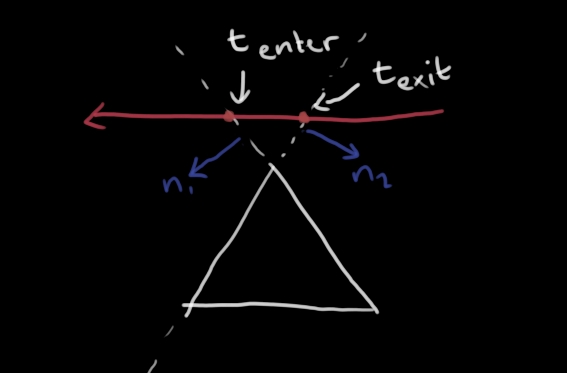 t enter
t exit
n₁
n₂